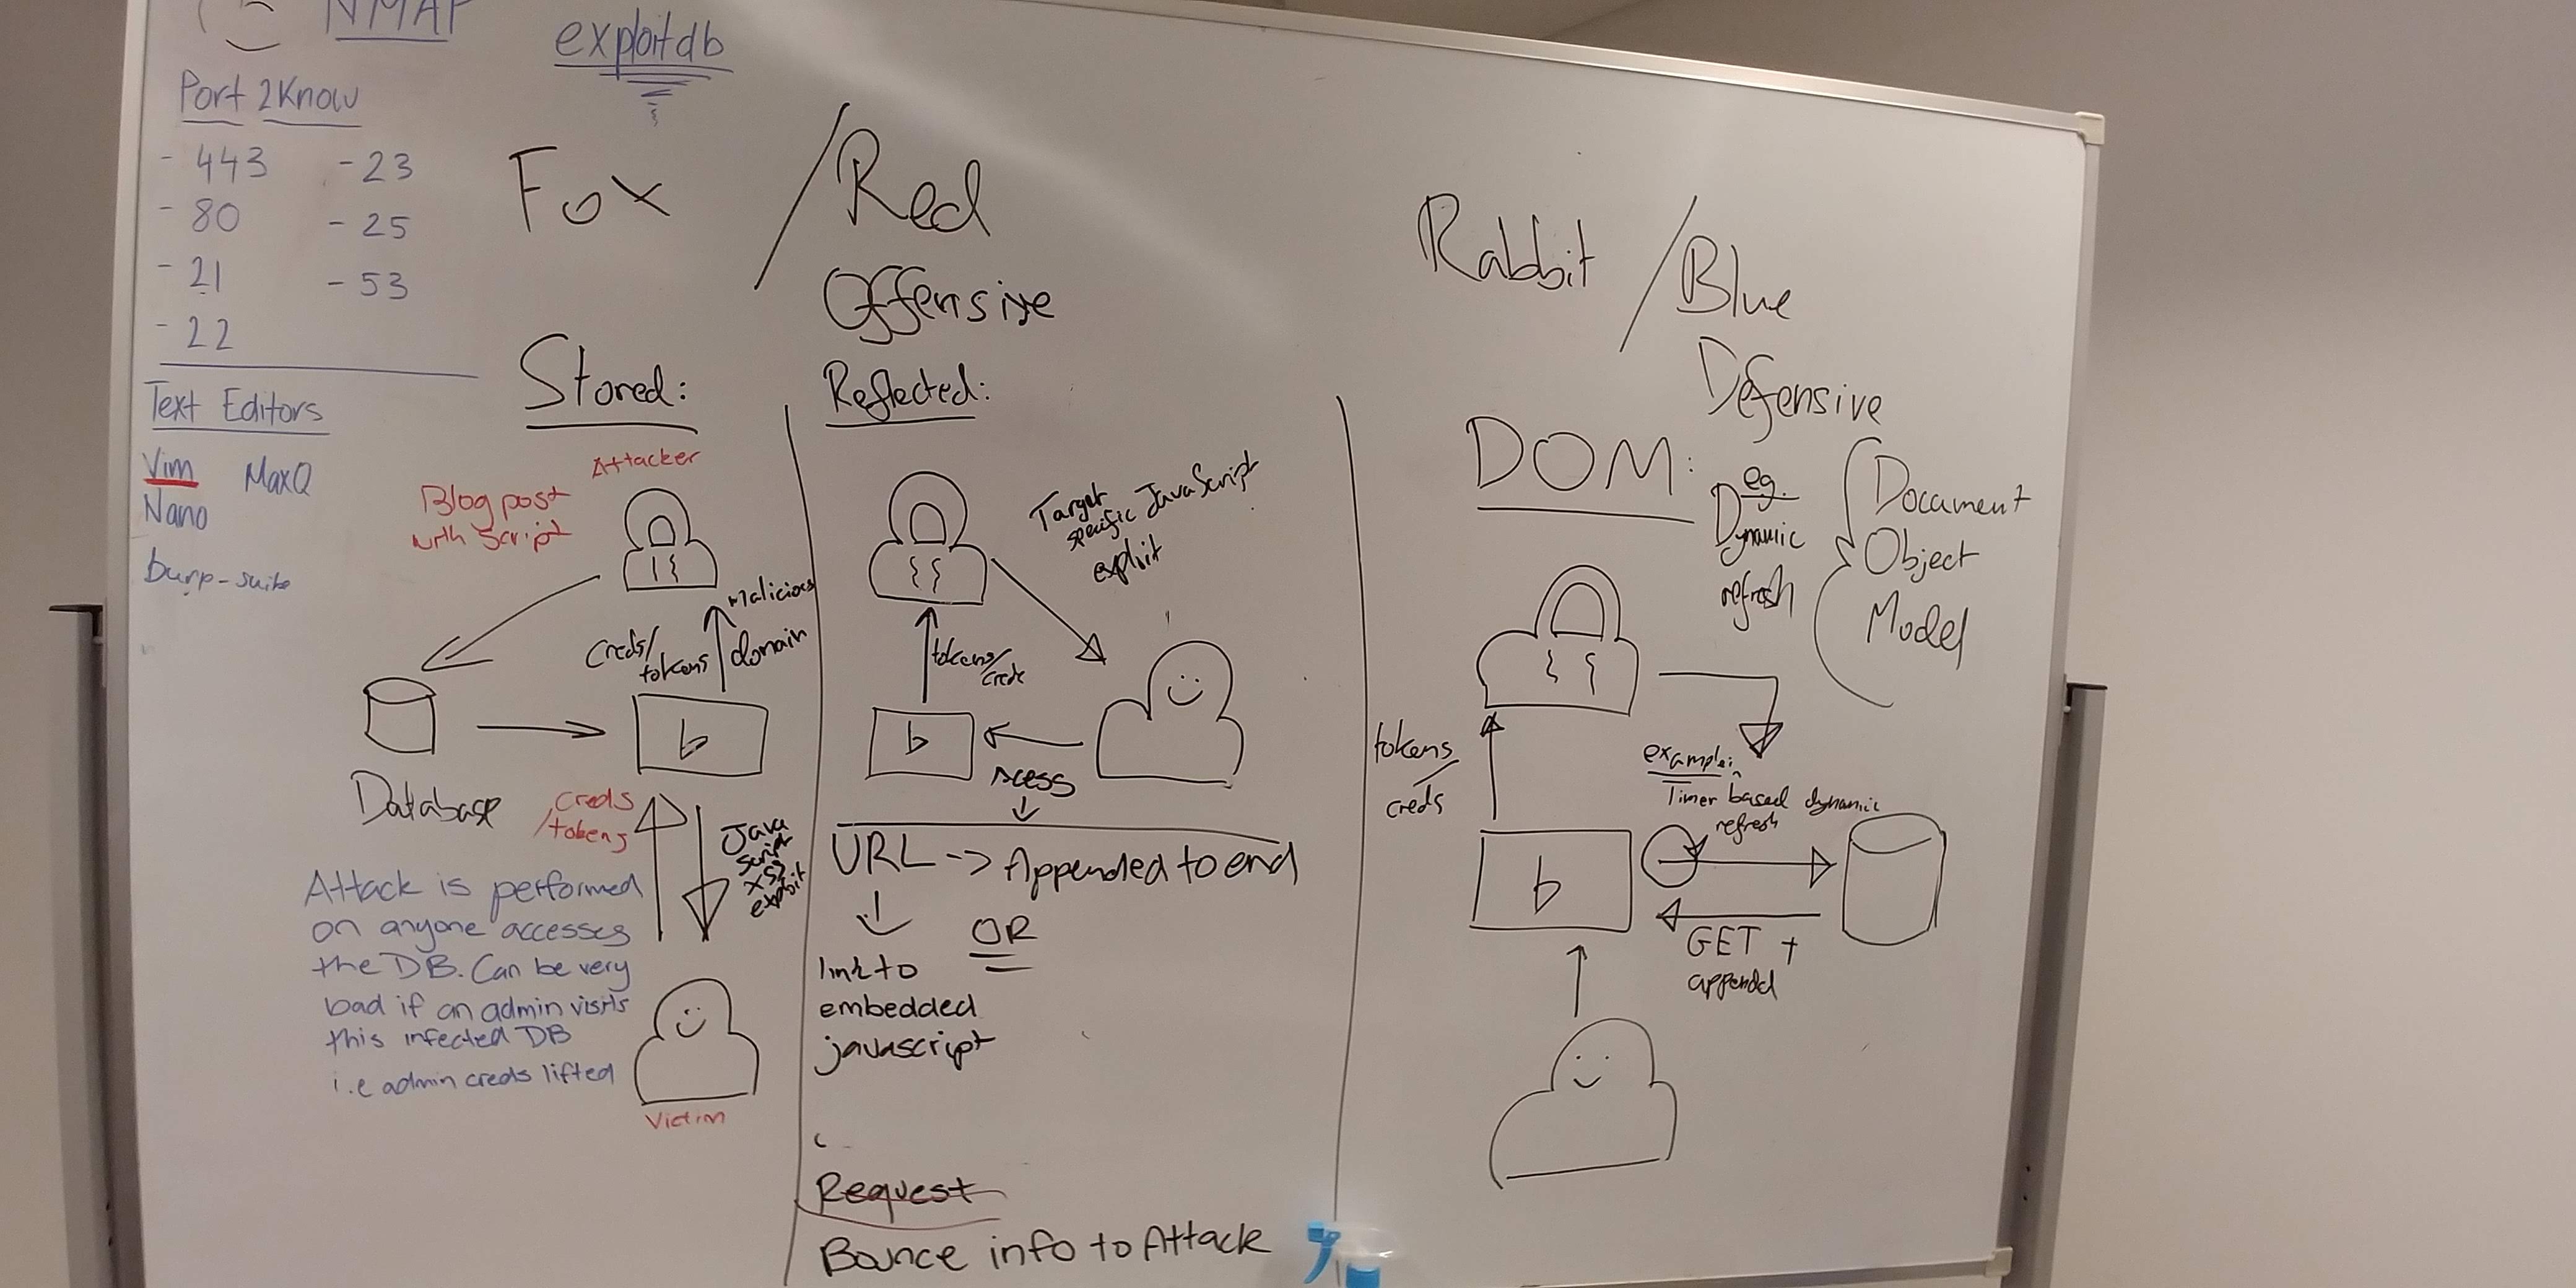 NMAP
exploitdb
Port 2Know
- 443
- 23
- 80
- 25
- 21
- 53
- 22
Text Editors
Vim
MaxQ
Nano
burp-suite
Fox / Red
Offensive
Rabbit / Blue
Defensive
Stored:
Attacker
Blog post
with Script
malicious
domain
creds/
tokens
b
Database
creds
/tokens
Java
script
xss
exploit
Attack is performed
on anyone accesses
the DB. Can be very
bad if an admin visits
this infected DB
i.e admin creds lifted
Victim
Reflected:
Target
specific JavaScript
exploit
tokens/
b
Acess
URL -> Appended to end
OR
link to
embedded
javascript
Request
Bounce info to Attack
DOM:
eg.
Dynamic
refresh
Document
Object
Model
tokens
/
creds
example:
Timer based dynamic
refresh
b
GET +
append